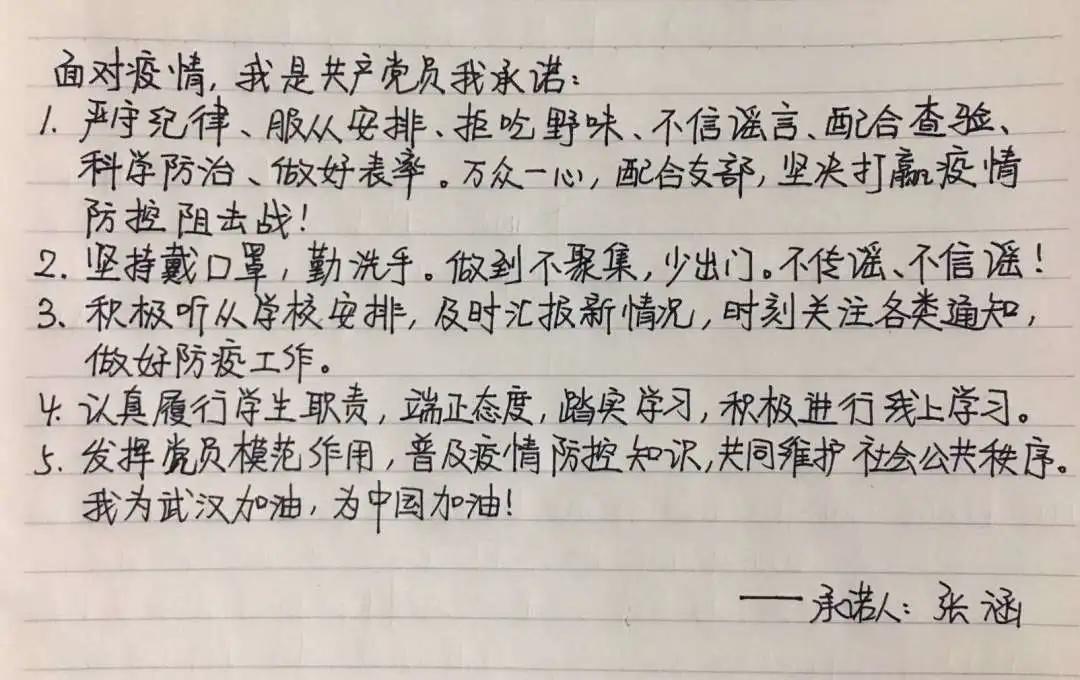 面对疫情,我是共产党员我承诺:
1. 严守纪律、服从安排、拒吃野味、不信谣言、配合查验、
科学防治、做好表率。万众一心,配合支部,坚决打赢疫情
防控阻击战!
2. 坚持戴口罩,勤洗手。做到不聚集,少出门。不传谣、不信谣!
3、积极听从学校安排,及时汇报新情况,时刻关注各类通知,
做好防疫工作。
4. 认真履行学生职责,端正态度,踏实学习,积极进行线上学习。
5. 发挥党员模范作用,普及疫情防控知识,共同维护社会公共秩序。
我为武汉加油,为中国加油!
——承诺人:张涵